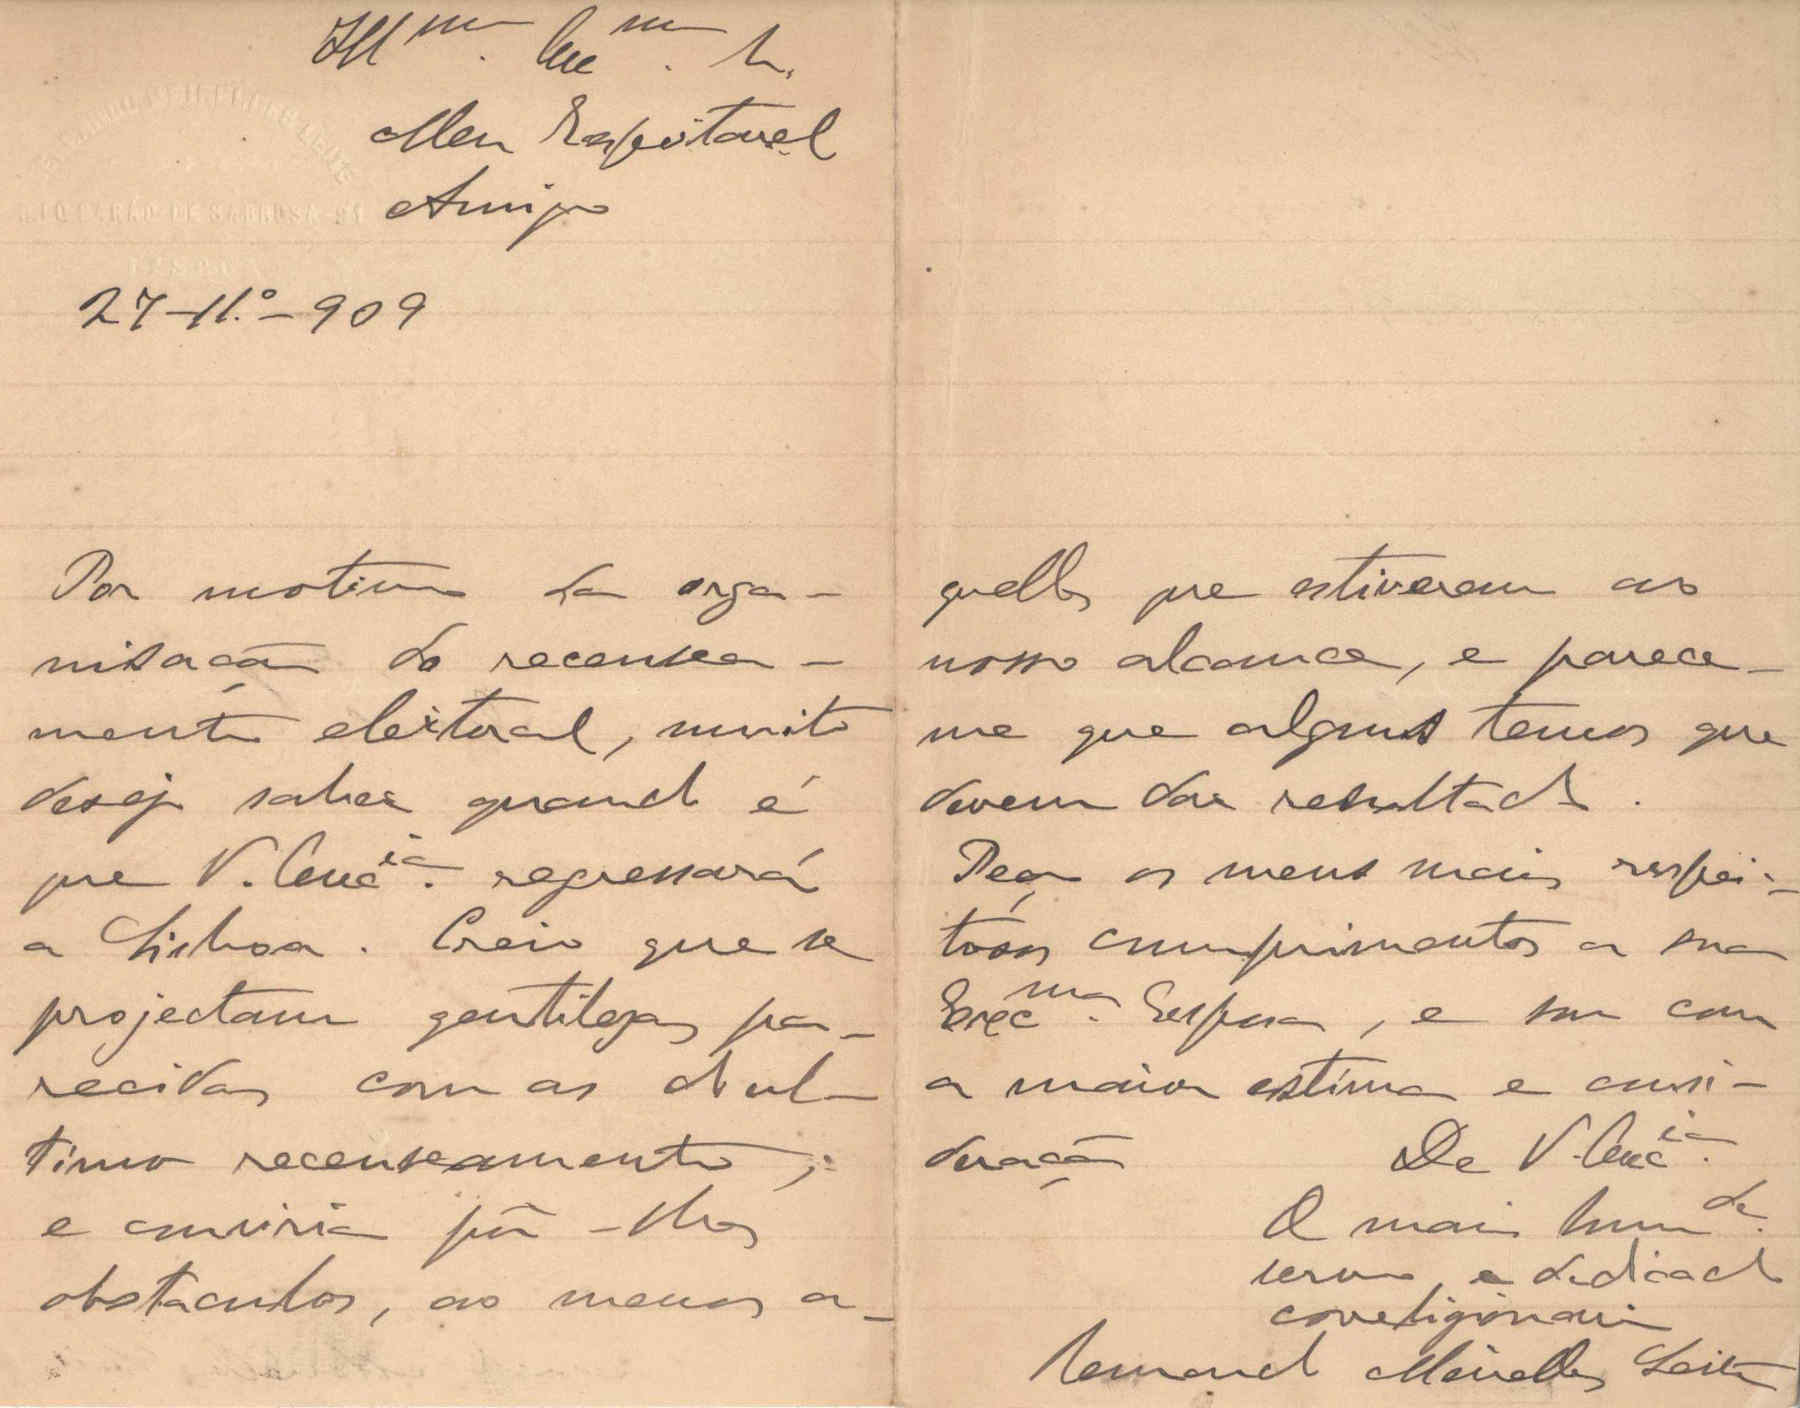 Illmo. Exmo. Sr.
Meu Respeitavel
Amigo
27-11.º-909
Por motivo da orga-
nisação do recensea-
mento eleitoral, muito
desejo saber quando é
que V. Excia. regressará
a Lisboa. Creio que se
projectam gentilezas pa-
recidas com as do ul-
timo recenseamento;
e conviria pôr-lhes
obstaculos, ao menos a-
quelles que estiverem ao
nosso alcance, e parece-
me que alguns temos que
devem dar resultado.
Peço os meus mais respei-
tosos cumprimentos a sua
Excma. Esposa, e sou com
a maior estima e consi-
deração
De V. Excia.
O mais humde.
servo, e dedicado
correligionario
Fernando Meirelles Leite
LISBOA